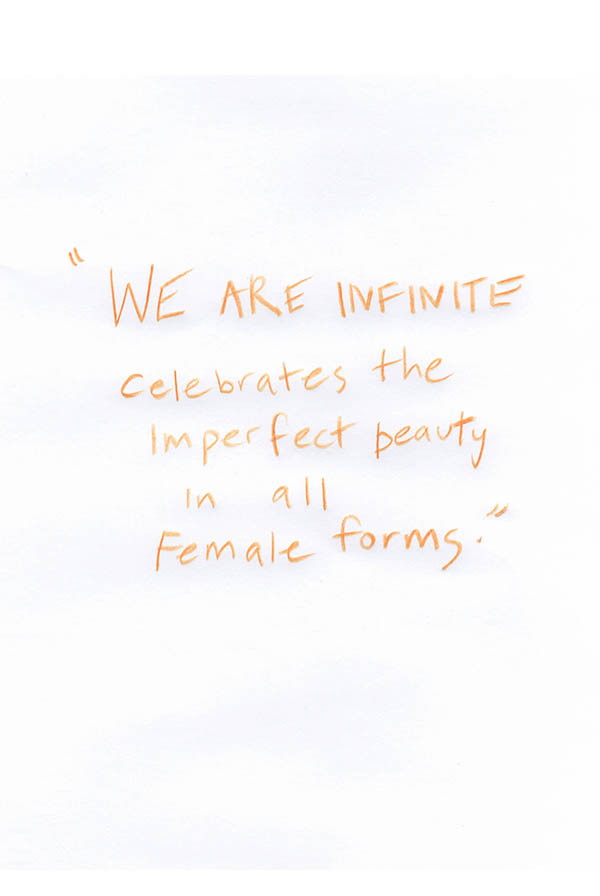 "WE ARE INFINITE
celebrates the
Imperfect beauty
in all
Female forms."